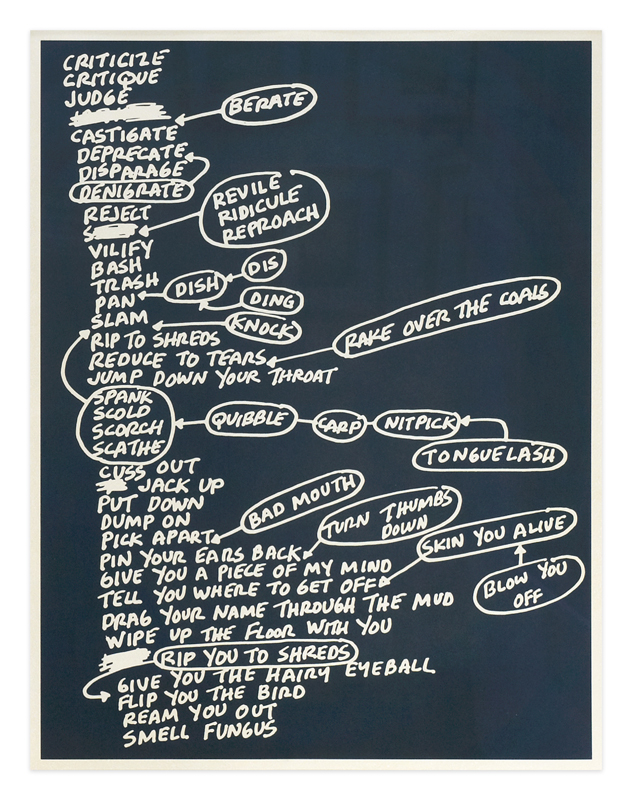 CRITICIZE
CRITIQUE
JUDGE
BERATE
CASTIGATE
DEPRECATE
DISPARAGE
DENIGRATE
REVILE
RIDICULE
REPROACH
REJECT
S
VILIFY
BASH
TRASH
DIS
DISH
PAN
DING
SLAM
KNOCK
RAKE OVER THE COALS
RIP TO SHREDS
REDUCE TO TEARS
JUMP DOWN YOUR THROAT
SPANK
SCOLD
SCORCH
SCATHE
QUIBBLE
CARP
NITPICK
TONGUELASH
CUSS OUT
JACK UP
PUT DOWN
DUMP ON
PICK APART
BAD MOUTH
TURN THUMBS
DOWN
PIN YOUR EARS BACK
SKIN YOU ALIVE
GIVE YOU A PIECE OF MY MIND
TELL YOU WHERE TO GET OFF
BLOW YOU
OFF
DRAG YOUR NAME THROUGH THE MUD
WIPE UP THE FLOOR WITH YOU
RIP YOU TO SHREDS
GIVE YOU THE HAIRY EYEBALL
FLIP YOU THE BIRD
REAM YOU OUT
SMELL FUNGUS